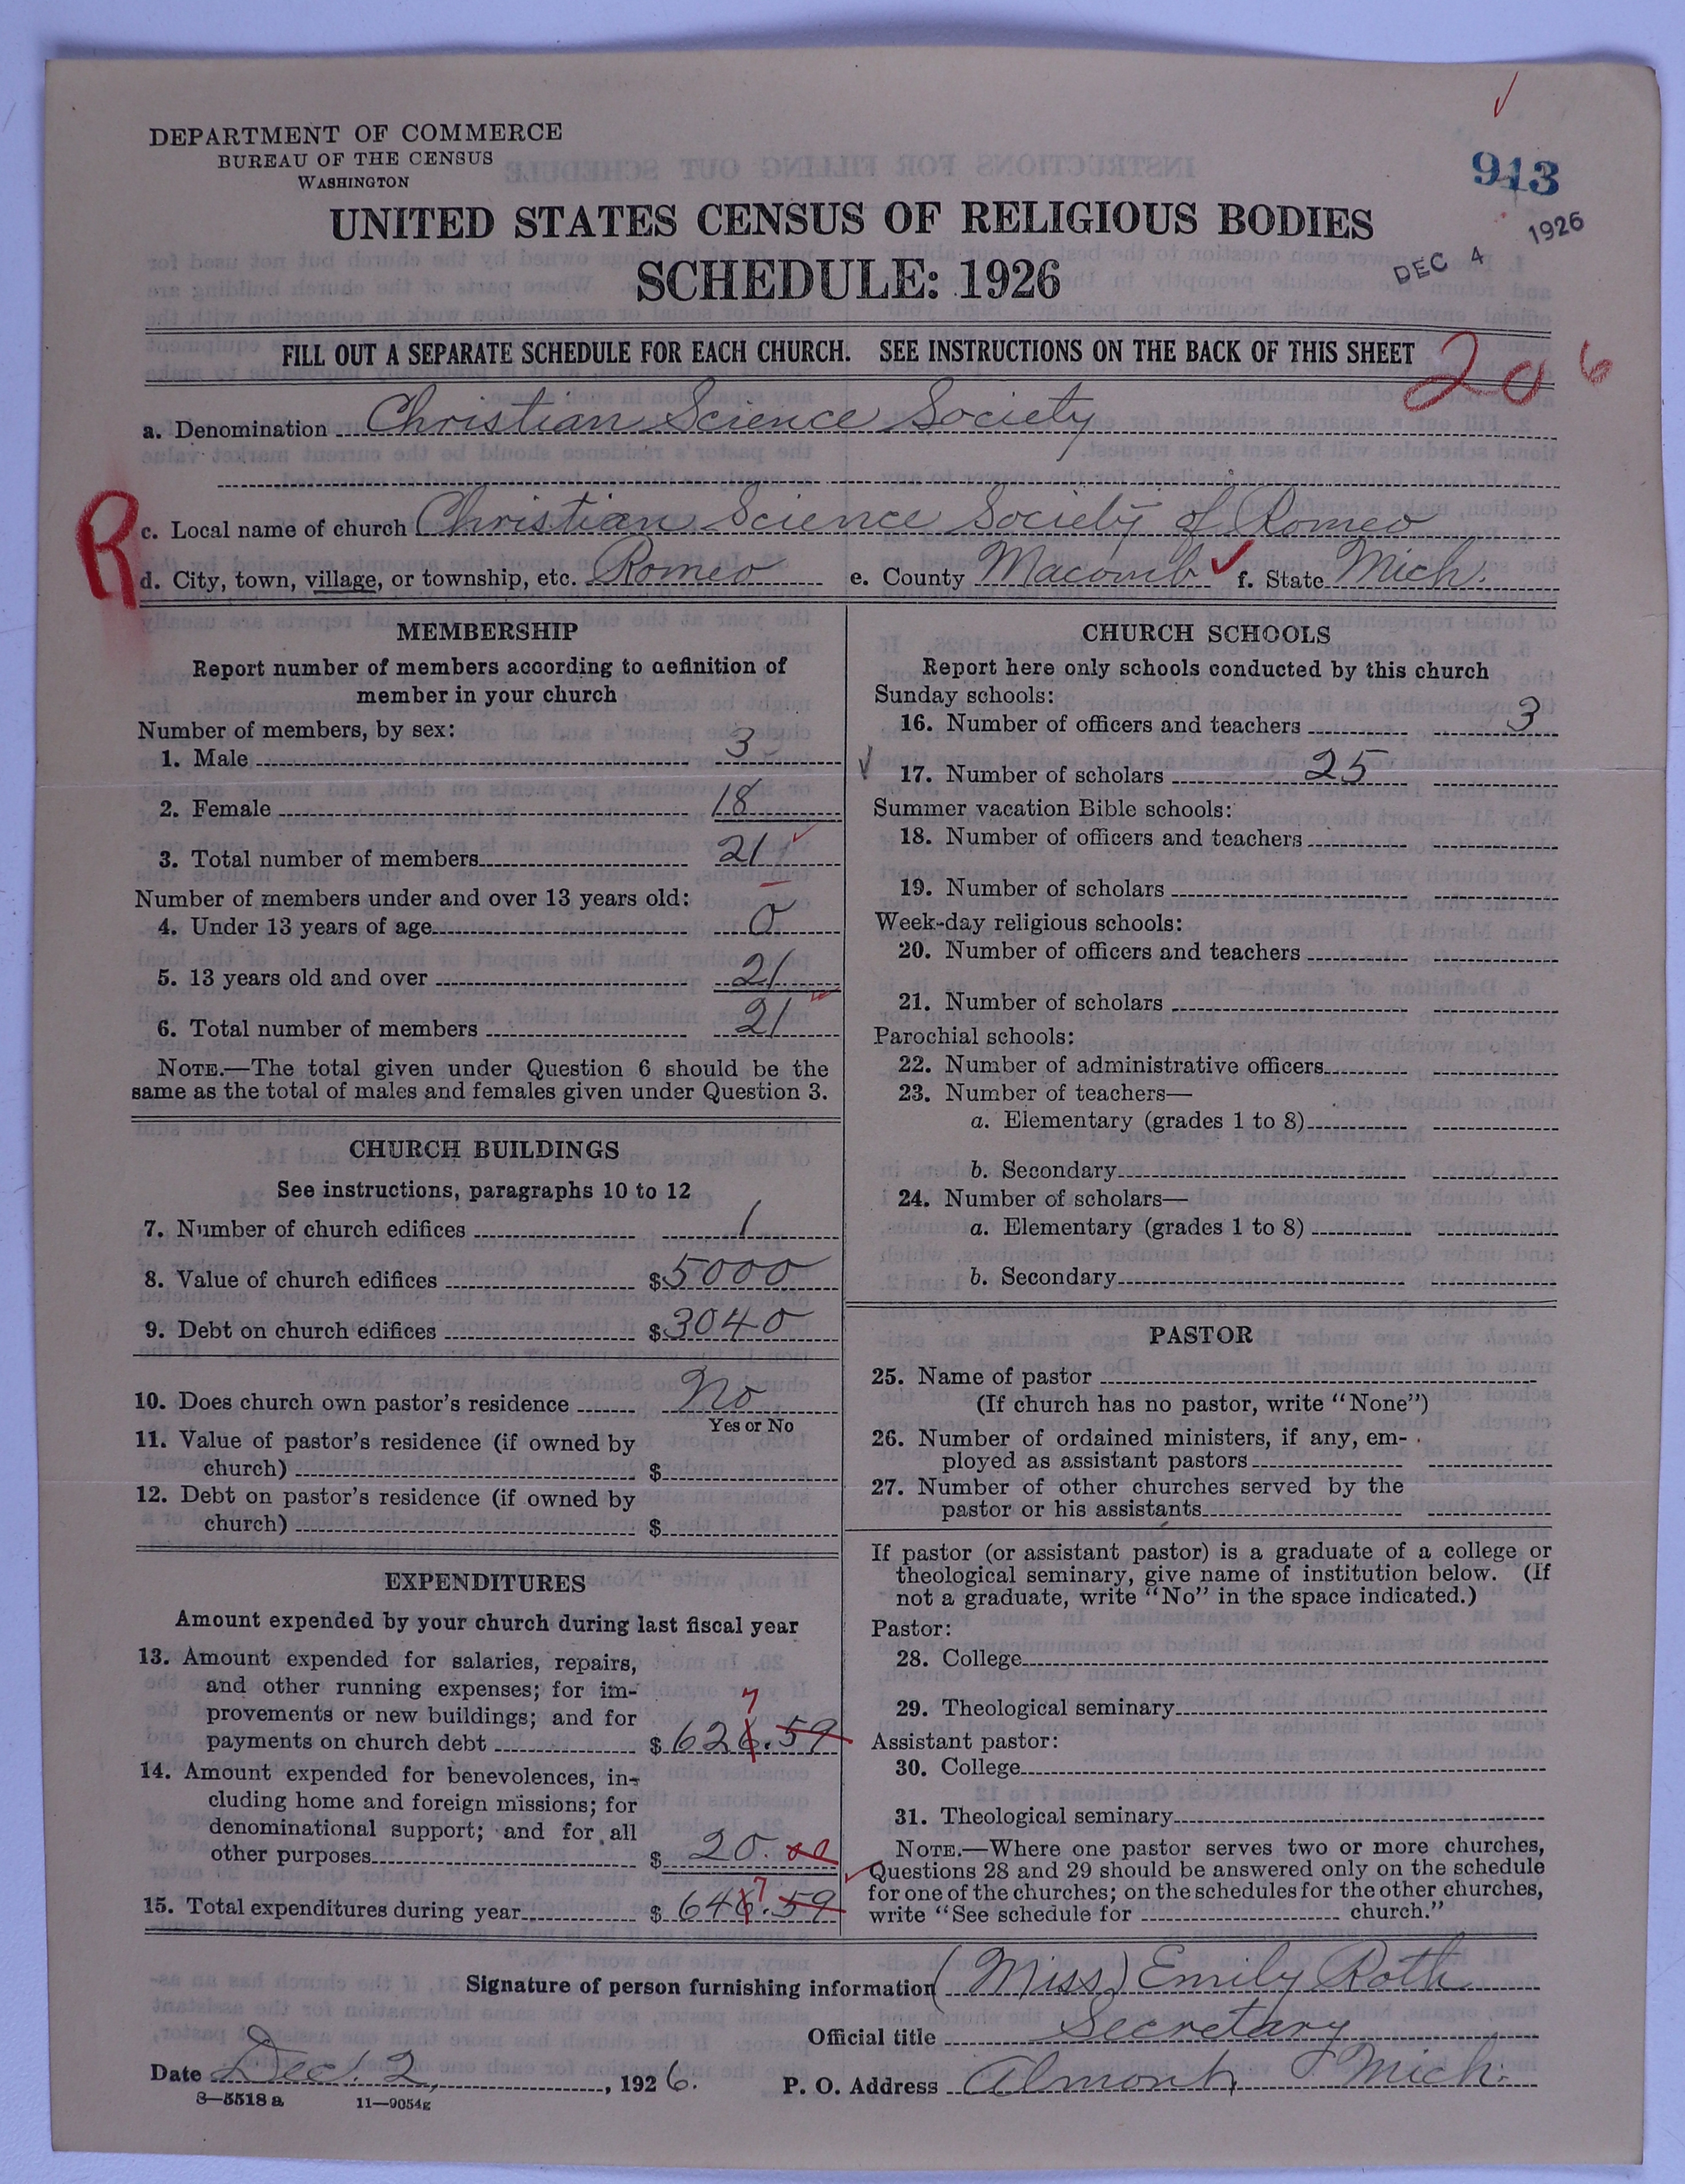 DEPARTMENT OF COMMERCE
BUREAU OF THE CENSUS
WASHINGTON
913
UNITED STATES CENSUS OF RELIGIOUS BODIES
SCHEDULE: 1926
DEC 4 1926
FILL OUT A SEPARATE SCHEDULE FOR EACH CHURCH. SEE INSTRUCTIONS ON THE BACK OF THIS SHEET
20 6
a. Denomination Christian Science Society
R
c. Local name of church Christian Science Society of Romeo
d. City, town, village, or township, etc. Romeo e. County Macomb f. State Mich.
MEMBERSHIP
Report number of members according to definition of
member in your church
Number of members, by sex:
1. Male 3
2. Female 18
3. Total number of members 21
Number of members under and over 13 years old:
4. Under 13 years of age 0
5. 13 years old and over 21
6. Total number of members 21
NOTE.—The total given under Question 6 should be the
same as the total of males and females given under Question 3.
CHURCH BUILDINGS
See instructions, paragraphs 10 to 12
7. Number of church edifices 1
8. Value of church edifices $5000
9. Debt on church edifices $3040
10. Does church own pastor's residence No
Yes or No
11. Value of pastor's residence (if owned by
church) $
12. Debt on pastor's residence (if owned by
church) $
EXPENDITURES
Amount expended by your church during last fiscal year
13. Amount expended for salaries, repairs,
and other running expenses; for im-
provements or new buildings; and for
7
payments on church debt $626.59
14. Amount expended for benevolences, in-
cluding home and foreign missions; for
denominational support; and for all
other purposes $20.00
7
15. Total expenditures during year $646.59
CHURCH SCHOOLS
Report here only schools conducted by this church
Sunday schools:
16. Number of officers and teachers 3
17. Number of scholars 25
Summer vacation Bible schools:
18. Number of officers and teachers
19. Number of scholars
Week-day religious schools:
20. Number of officers and teachers
21. Number of scholars
Parochial schools:
22. Number of administrative officers
23. Number of teachers—
a. Elementary (grades 1 to 8)
b. Secondary
24. Number of scholars—
a. Elementary (grades 1 to 8)
b. Secondary
PASTOR
25. Name of pastor
(If church has no pastor, write "None")
26. Number of ordained ministers, if any, em-
ployed as assistant pastors
27. Number of other churches served by the
pastor or his assistants
If pastor (or assistant pastor) is a graduate of a college or
theological seminary, give name of institution below. (If
not a graduate, write "No" in the space indicated.)
Pastor:
28. College
29. Theological seminary
Assistant pastor:
30. College
31. Theological seminary
NOTE.—Where one pastor serves two or more churches,
Questions 28 and 29 should be answered only on the schedule
for one of the churches; on the schedules for the other churches,
write "See schedule for church."
Signature of person furnishing information (Miss) Emily Roth
Official title Secretary
Date Dec. 2, 1926. P. O. Address Almont, Mich.
8—5518 a 11—9054g